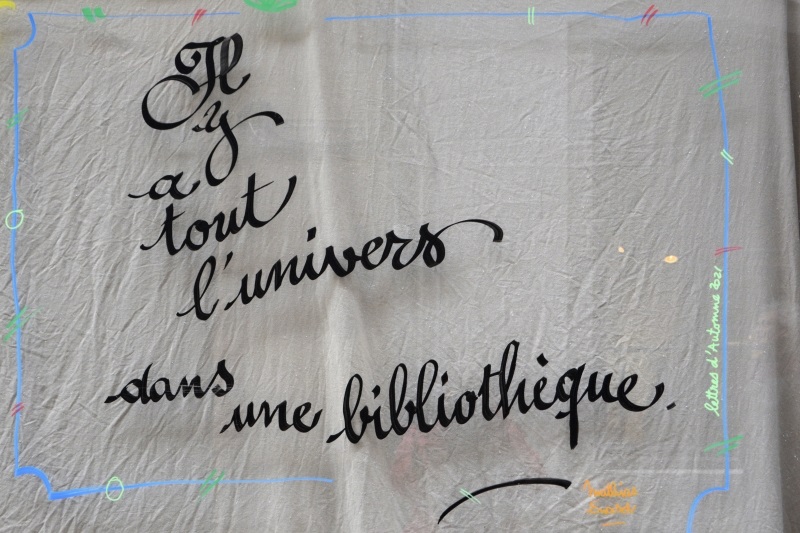 Il
y
a
tout
l'univers
dans
une bibliothèque.
lettres d'Automne 2021